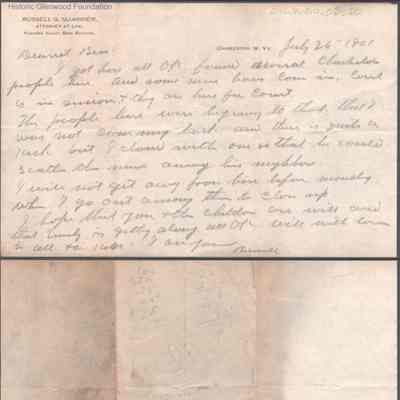 Historic Glenwood Foundation
RUSSELL G. QUARRIER,
ATTORNEY AT LAW,
KANAWHA VALLEY BANK BUILDING,
CHARLESTON, W. VA. July 26th 1901
Dearest Bess
I got here all OK found several Charleston
people here, and some more have come in, Court
is in session & they are here for Court.
The people here were begining to think that I
was not coming back and there is quite a
but I closed with one so that he could
scatter the news among his neighbors
I will not get away from here before Monday
when I go out among them to close up
I hope that you & the children are well and
that is getting along all OK will
to all & I am yours
Russell